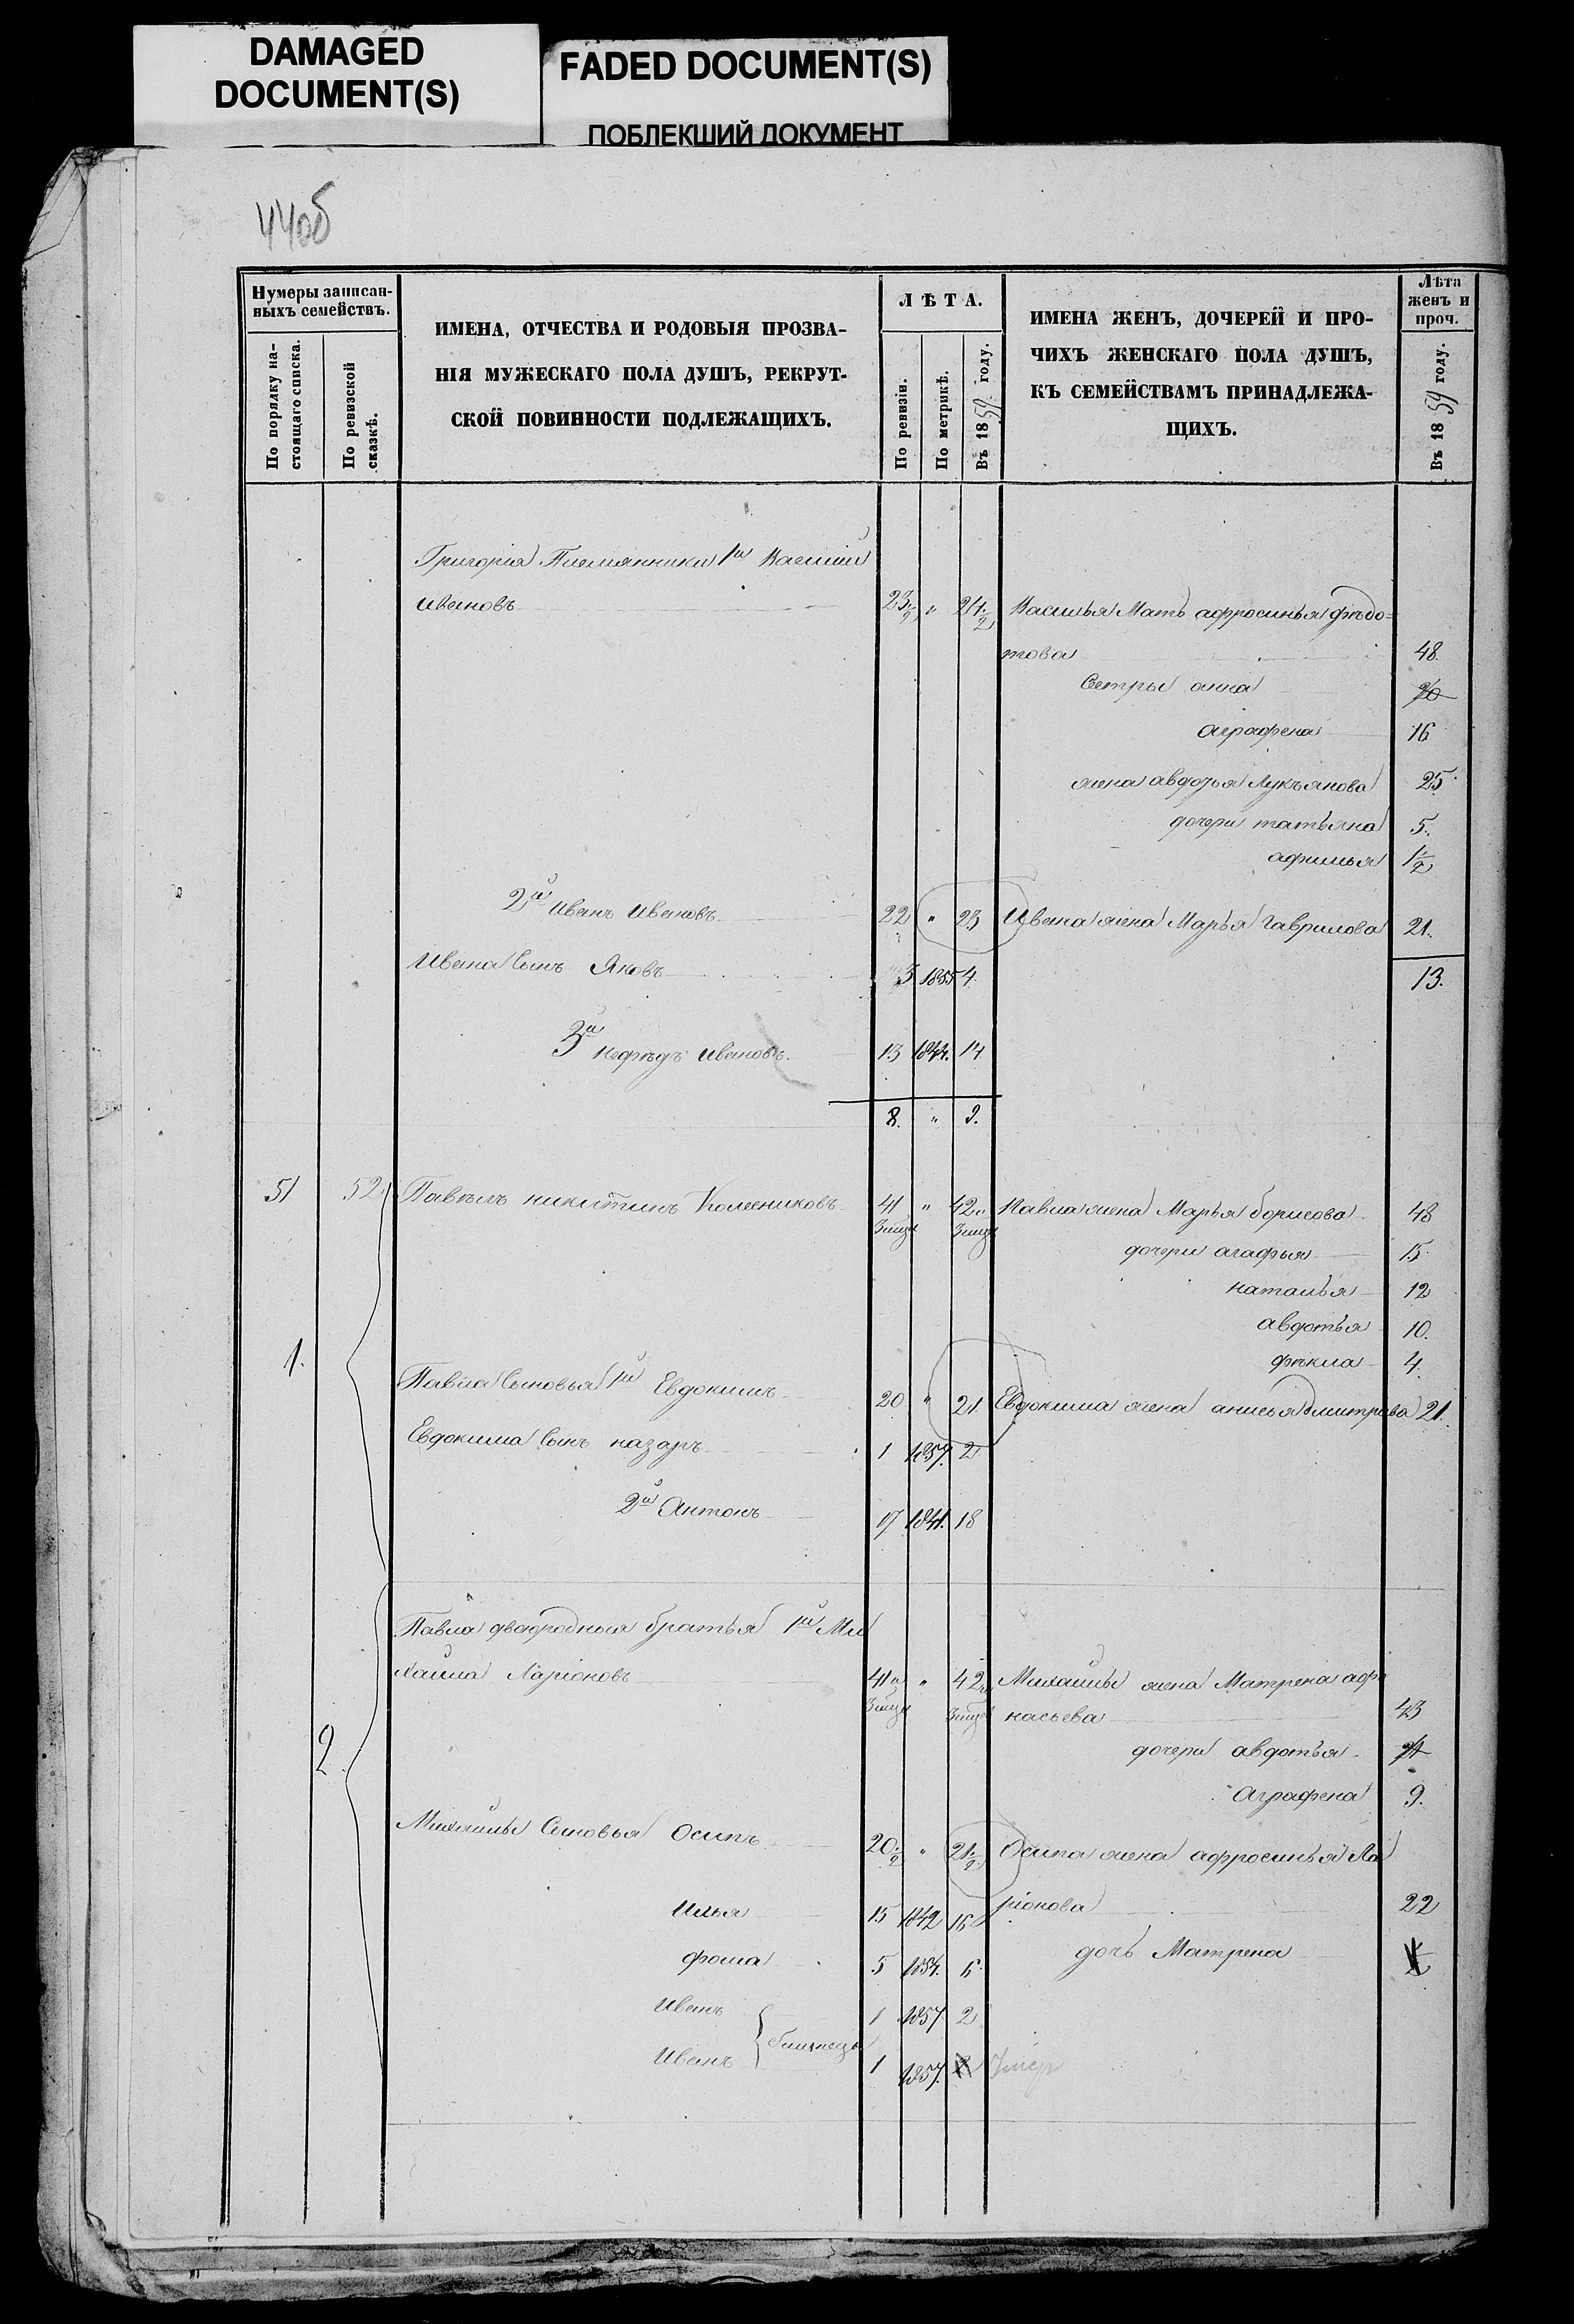 DAMAGED
DOCUMENT(S)
FADED DOCUMENT(S)
ПОБЛЕКШИЙ ДОКУМЕНТ
440об
Нумеры записан-
ныхъ семействъ.
По порядку на-
стоящаго списка.
По ревизской
сказкѣ.
ИМЕНА, ОТЧЕСТВА И РОДОВЫЯ ПРОЗВА-
НІЯ МУЖЕСКАГО ПОЛА ДУШЪ, РЕКРУТ-
СКОЙ ПОВИННОСТИ ПОДЛЕЖАЩИХЪ.
ЛѢТА.
По ревизіи.
По метрикѣ.
Въ 1859 году.
ИМЕНА ЖЕНЪ, ДОЧЕРЕЙ И ПРО-
ЧИХЪ ЖЕНСКАГО ПОЛА ДУШЪ,
КЪ СЕМЕЙСТВАМЪ ПРИНАДЛЕЖА-
ЩИХЪ.
Лѣта
женъ и
проч.
Въ 1859 году.
Григорія Племянника 1й Василій
Ивановъ 23½ " 24½ Василья Мать афросинья федо=
това 48.
Сестры анна 20
аграфена 16
жена авдотья Лукъянова 25
дочери татьяна 5.
афимья 1½
2й Иванъ Ивановъ 22 " 23 Ивана жена Марья Гаврилова 21.
Ивана Сынъ Яковъ 3 1855 4.
13.
3й нефедъ Ивановъ. 13 1844. 14
8. " 9.
51 52 Павелъ никитинъ Колесниковъ 41 " 42 Павла жена Марья борисова 48
дочери агафья 15
наталья 12
авдотья 10.
фекла 4.
1.
Павла Сыновья 1й Евдокимъ 20 " 21. Евдокима жена анисья дмитрева 21.
Евдокима Сынъ назаръ 1 1857. 2
2й Антонъ 17 1841. 18
Павла двоюродныя братья 1й Ми
хайла Ларіоновъ 41 " 42 Михайлы жена Матрена афо
насьева 43
2.
дочери авдотья
Аграфена 9.
Михайлы Сыновья Осипъ 20½ " 21½ Осипа жена афросинья Ла
ріонова 22
Илья 15 1842 16
дочь Матрена
фома 5 1854. 6
Иванъ 1 1857 2
близнецы
Иванъ 1 1857. 2 Умер